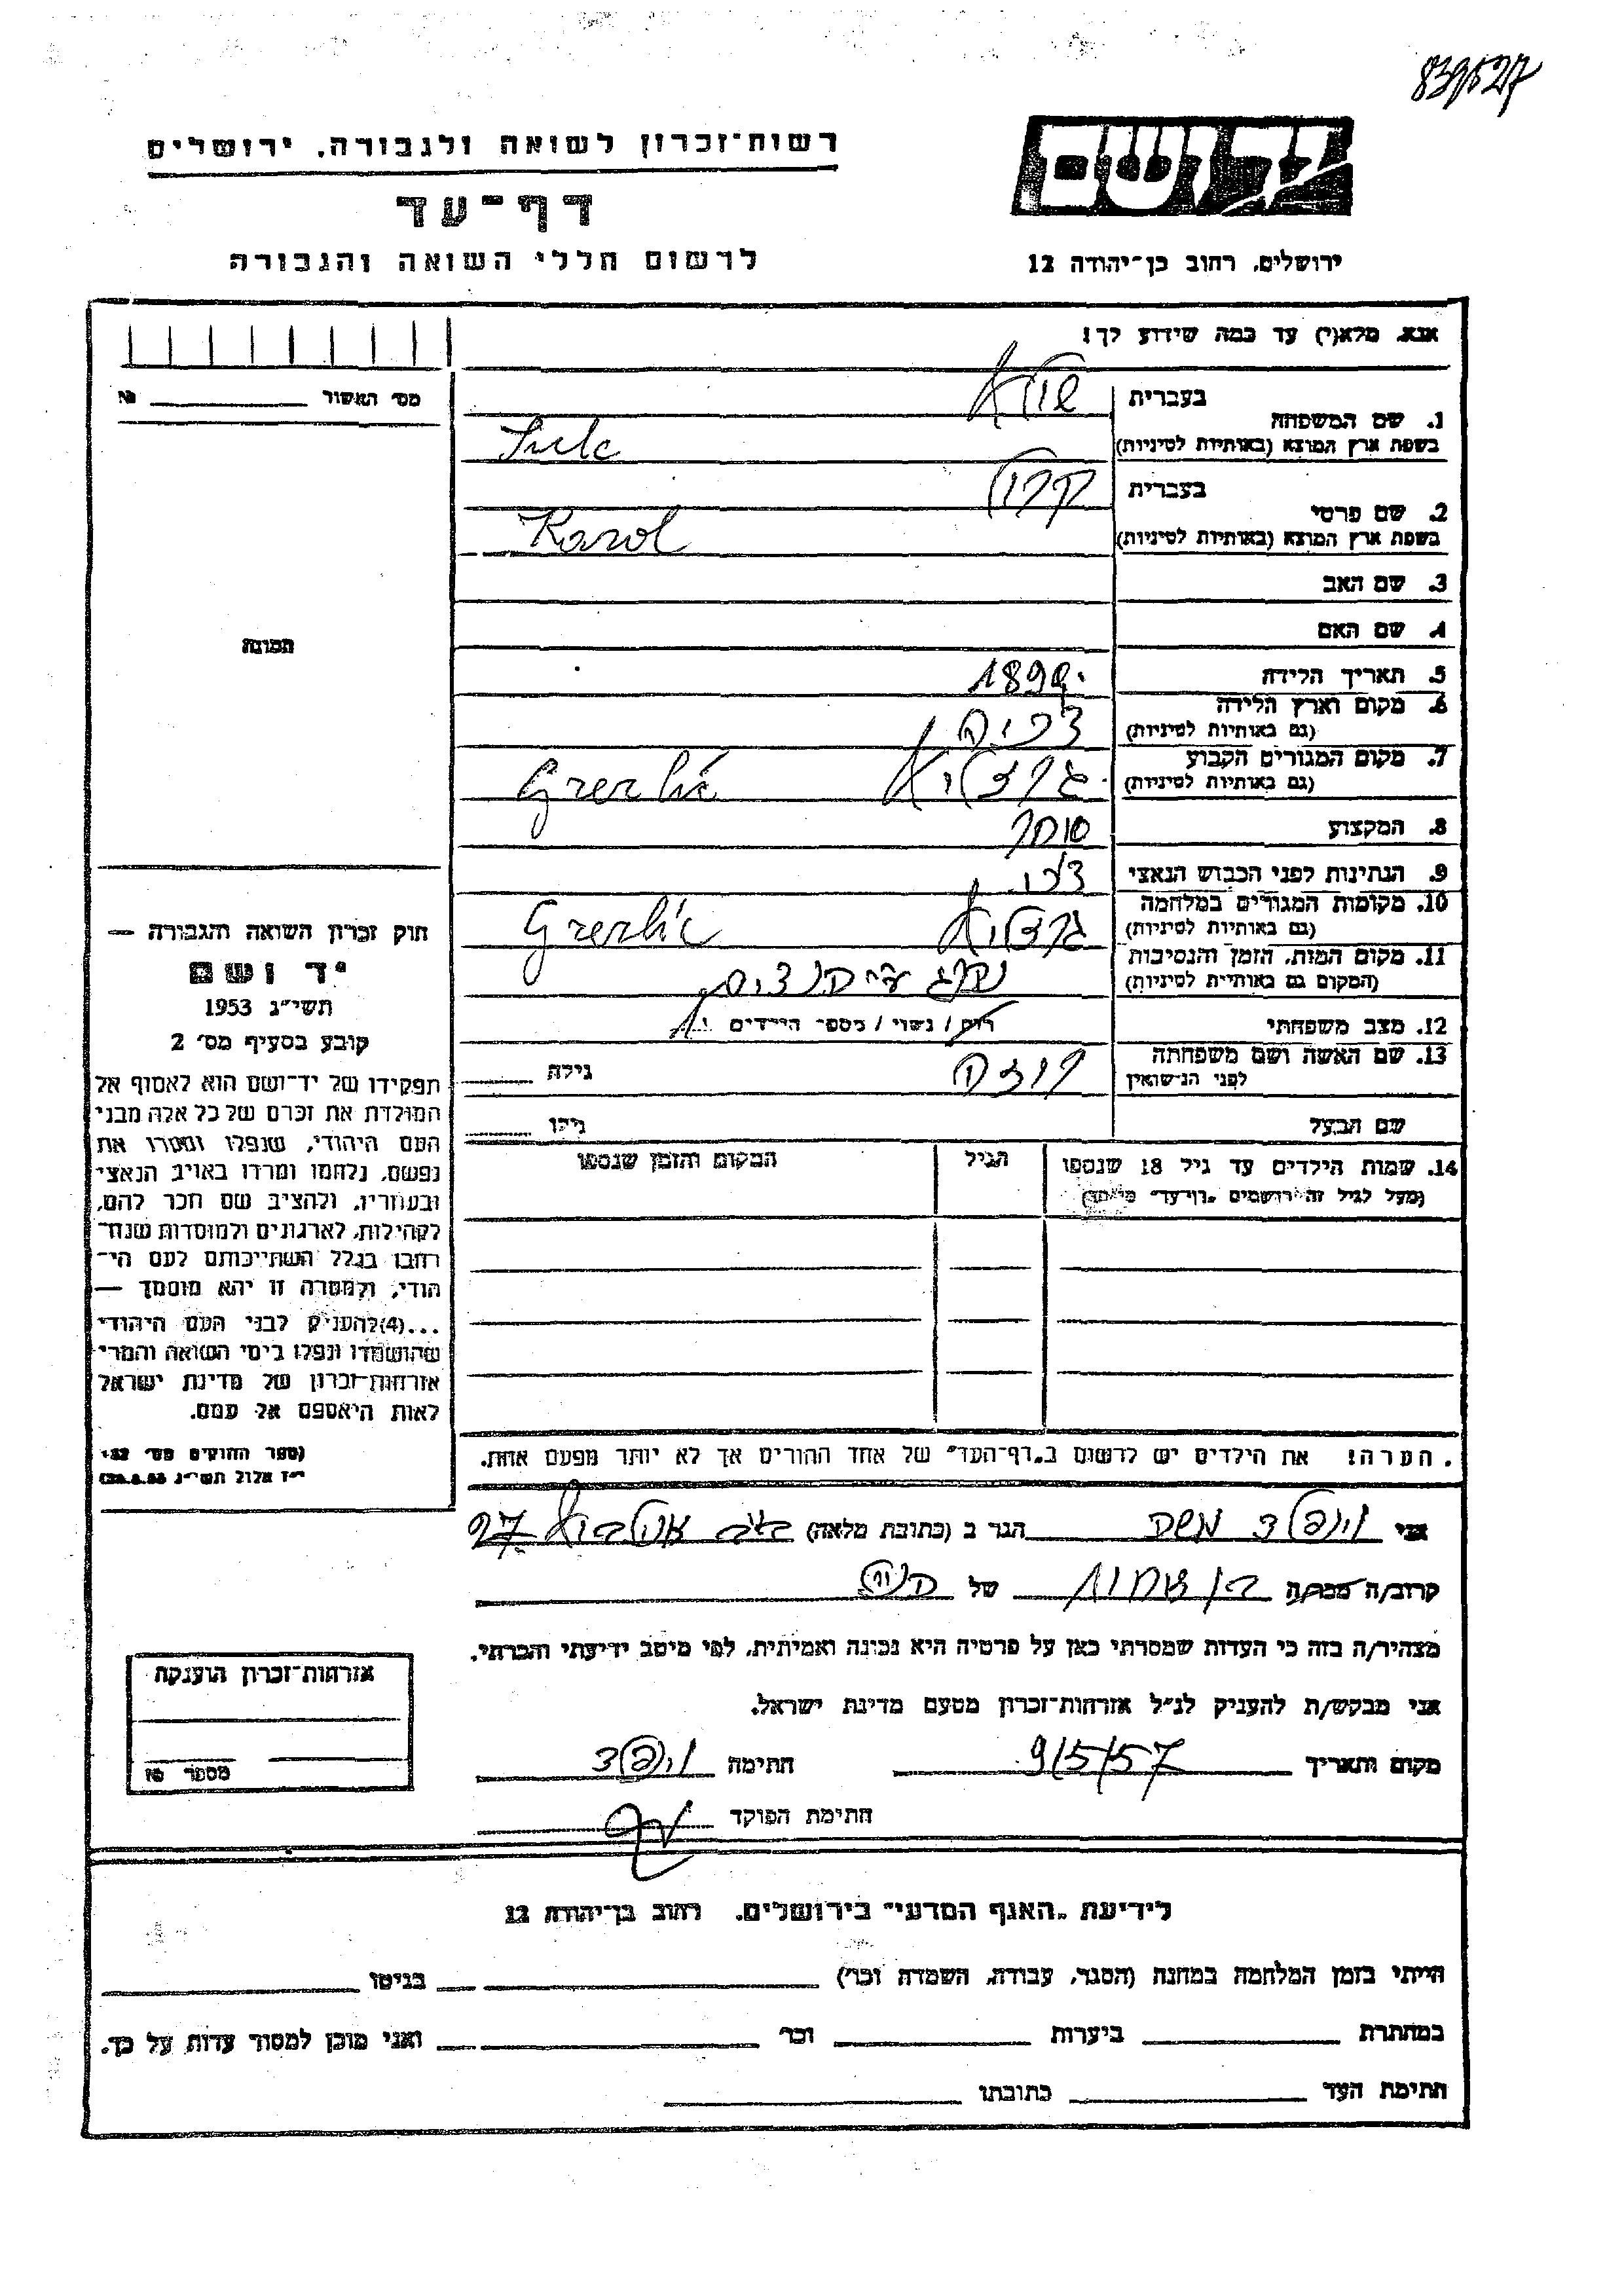 839527
רשות־זכרון לשואה ולגבורה, ירושלים
דף־עד
לרשום חללי השואה והגבורה
יד ושם
ירושלים, רחוב בן־יהודה 12
אנא, מלא(י) עד כמה שידוע לך!
מס׳ האשור № 
בעברית
1. שם המשפחה
בשפת ארץ המוצא (באותיות לטיניות)
בעברית קרול
2. שם פרטי
בשפת ארץ המוצא (באותיות לטיניות) Karol
3. שם האב
4. שם האם
תמונה
5. תאריך הלידה 1890
6. מקום וארץ הלידה
(גם באותיות לטיניות)
7. מקום המגורים הקבוע
(גם באותיות לטיניות)
8. המקצוע סוחר
9. הנתינות לפני הכבוש הנאצי צ׳כי
10. מקומות המגורים במלחמה
(גם באותיות לטיניות)
11. מקום המות, הזמן והנסיבות
(המקום גם באותיות לטיניות) נהרג ע״י
12. מצב משפחתי רווק / נשוי / מספר הילדים 1
13. שם האשה ושם משפחתה
לפני הנישואין גילה
שם הבעל גילו
14. שמות הילדים עד גיל 18 שנספו הגיל המקום והזמן שנספו
(מעל לגיל זה רושמים "דף־עד" מיוחד)
חוק זכרון השואה והגבורה —
יד ושם
תשי״ג 1953
קובע בסעיף מס׳ 2
תפקידו של יד־ושם הוא לאסוף אל
המולדת את זכרם של כל אלה מבני
העם היהודי, שנפלו ומסרו את
נפשם, נלחמו ומרדו באויב הנאצי
ובעוזריו, ולהציב שם וזכר להם,
לקהילות, לארגונים ולמוסדות שנח־
רבו בגלל השתייכותם לעם הי־
הודי, ולמטרה זו יהא מוסמך —
...(4)להעניק לבני העם היהודי
שהושמדו ונפלו בימי השואה והמרי
אזרחות־זכרון של מדינת ישראל
לאות היאספם אל עמם.
(ספר החוקים מס׳ 132
י״ז אלול תשי״ג 28.8.53)
הערה! את הילדים יש לרשום ב„דף־העד״ של אחד ההורים אך לא יותר מפעם אחת.
אני הגר ב (כתובת מלאה)
קרוב/ה מכר/ה של
מצהיר/ה בזה כי העדות שמסרתי כאן על פרטיה היא נכונה ואמיתית, לפי מיטב ידיעתי והכרתי.
אני מבקש/ת להעניק לנ״ל אזרחות־זכרון מטעם מדינת ישראל.
מקום ותאריך 9/5/57 חתימה
חתימת הפוקד
אזרחות־זכרון הוענקה
מספר
לידיעת „האגף המדעי״ בירושלים, רחוב בן־יהודה 12
הייתי בזמן המלחמה במחנה (הסגר, עבודה, השמדה וכו׳) בגיטו
במחתרת ביערות וכו׳ ואני מוכן למסור עדות על כך.
חתימת העד כתובתו